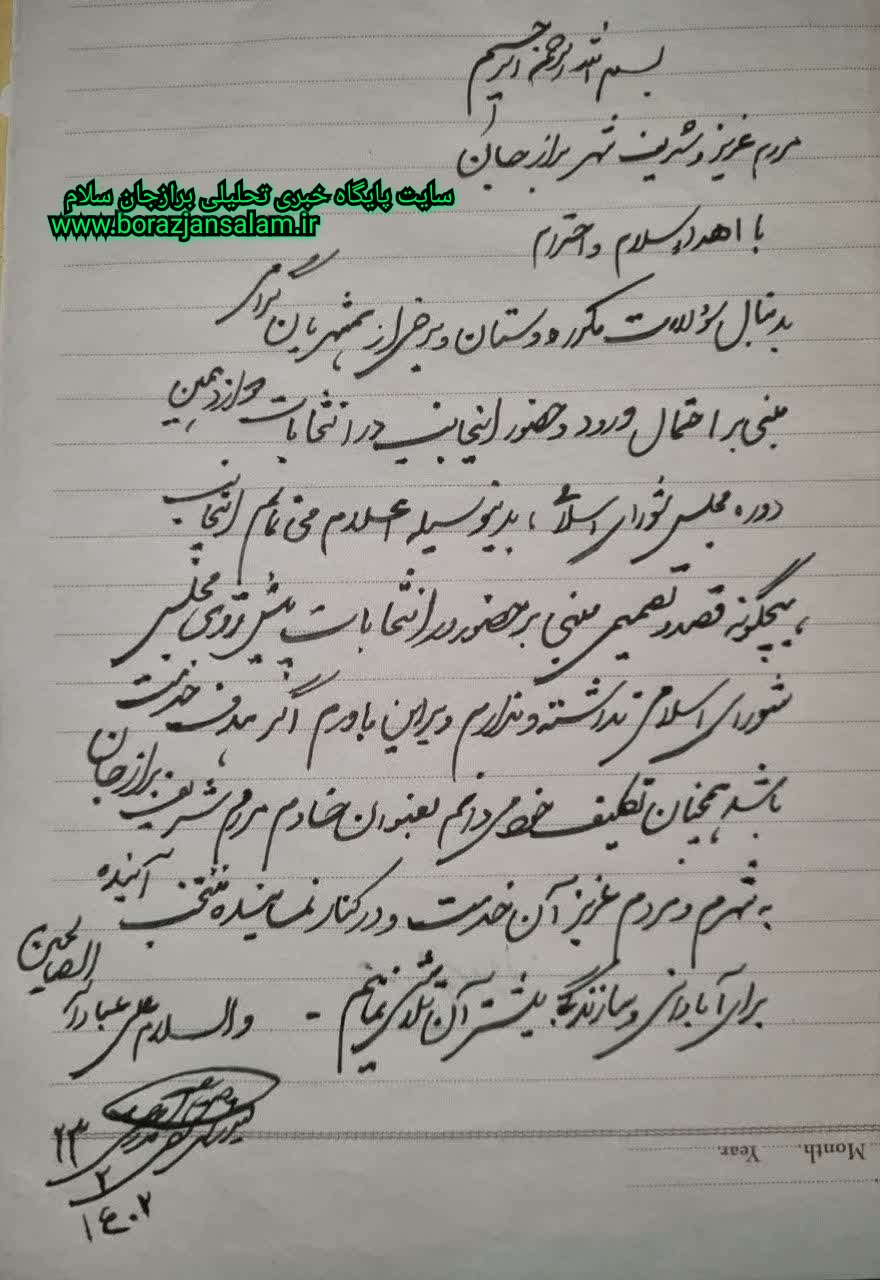 بسم الله الرحمن الرحیم
مردم عزیز و شریف شهر برازجان
سایت پایگاه خبری تحلیلی برازجان سلام
www.borazjansalam.ir
با اهداء سلام و احترام
بدنبال سؤلات مکرر دوستان و برخی از همشهریان گرامی
مبنی بر احتمال ورود و حضور اینجانب در انتخابات دوازدهمین
دوره مجلس شورای اسلامی، بدینوسیله اعلام می نمایم اینجانب
هیچگونه قصد و تصمیمی مبنی بر حضور در انتخابات پیش روی مجلس
شورای اسلامی نداشته و ندارم و براین باورم اگر هدف خدمت
باشد همچنان تکلیف خود می دانم بعنوان خادم مردم شریف برازجان
به شهرم و مردم عزیز آن خدمت و در کنار نماینده منتخب آینده
برای آبادانی و سازندگی بیشتر آن تلاش نمایم - والسلام علی عبادالله الصالحین
۲۳
۲
۱۴۰۲
Month. Year.